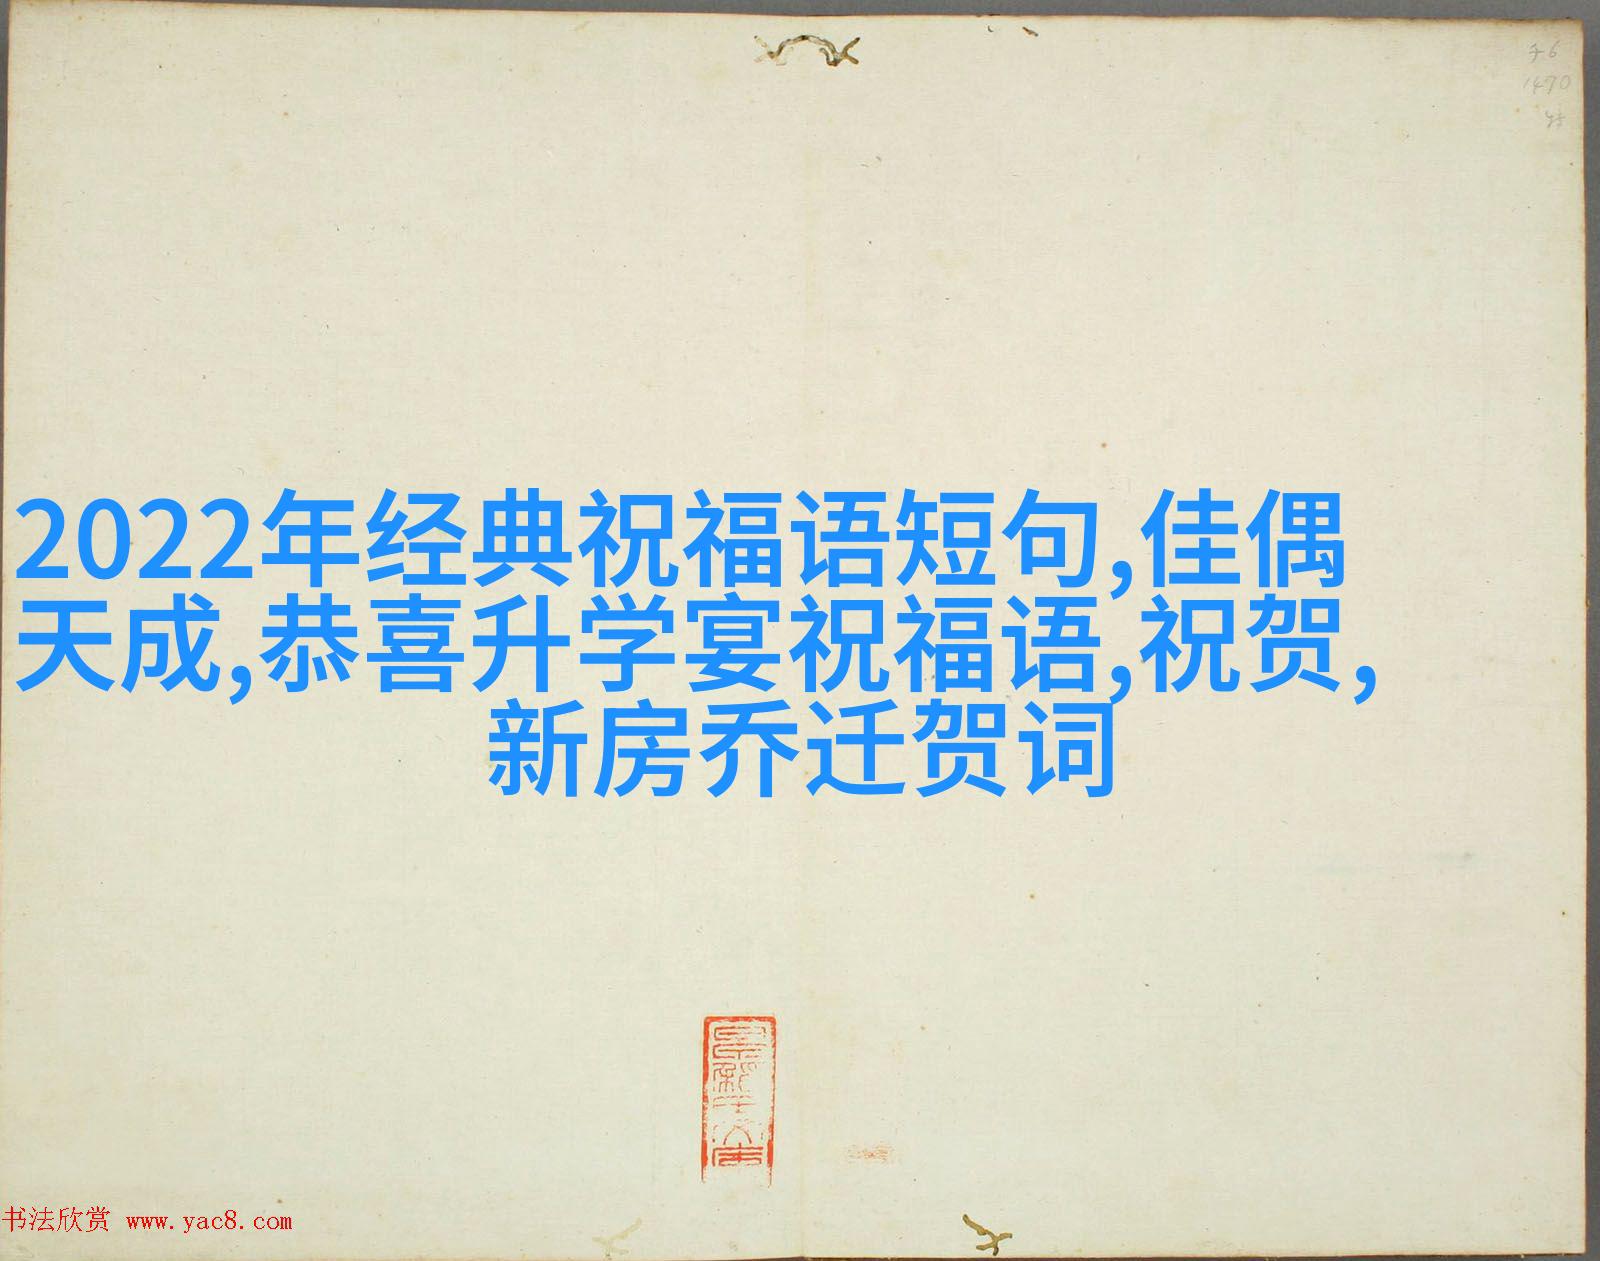 1470
2022年经典祝福语短句,佳偶
天成,恭喜升学宴祝福语,祝贺,
新房乔迁贺词
书法欣赏 www.yac8.com